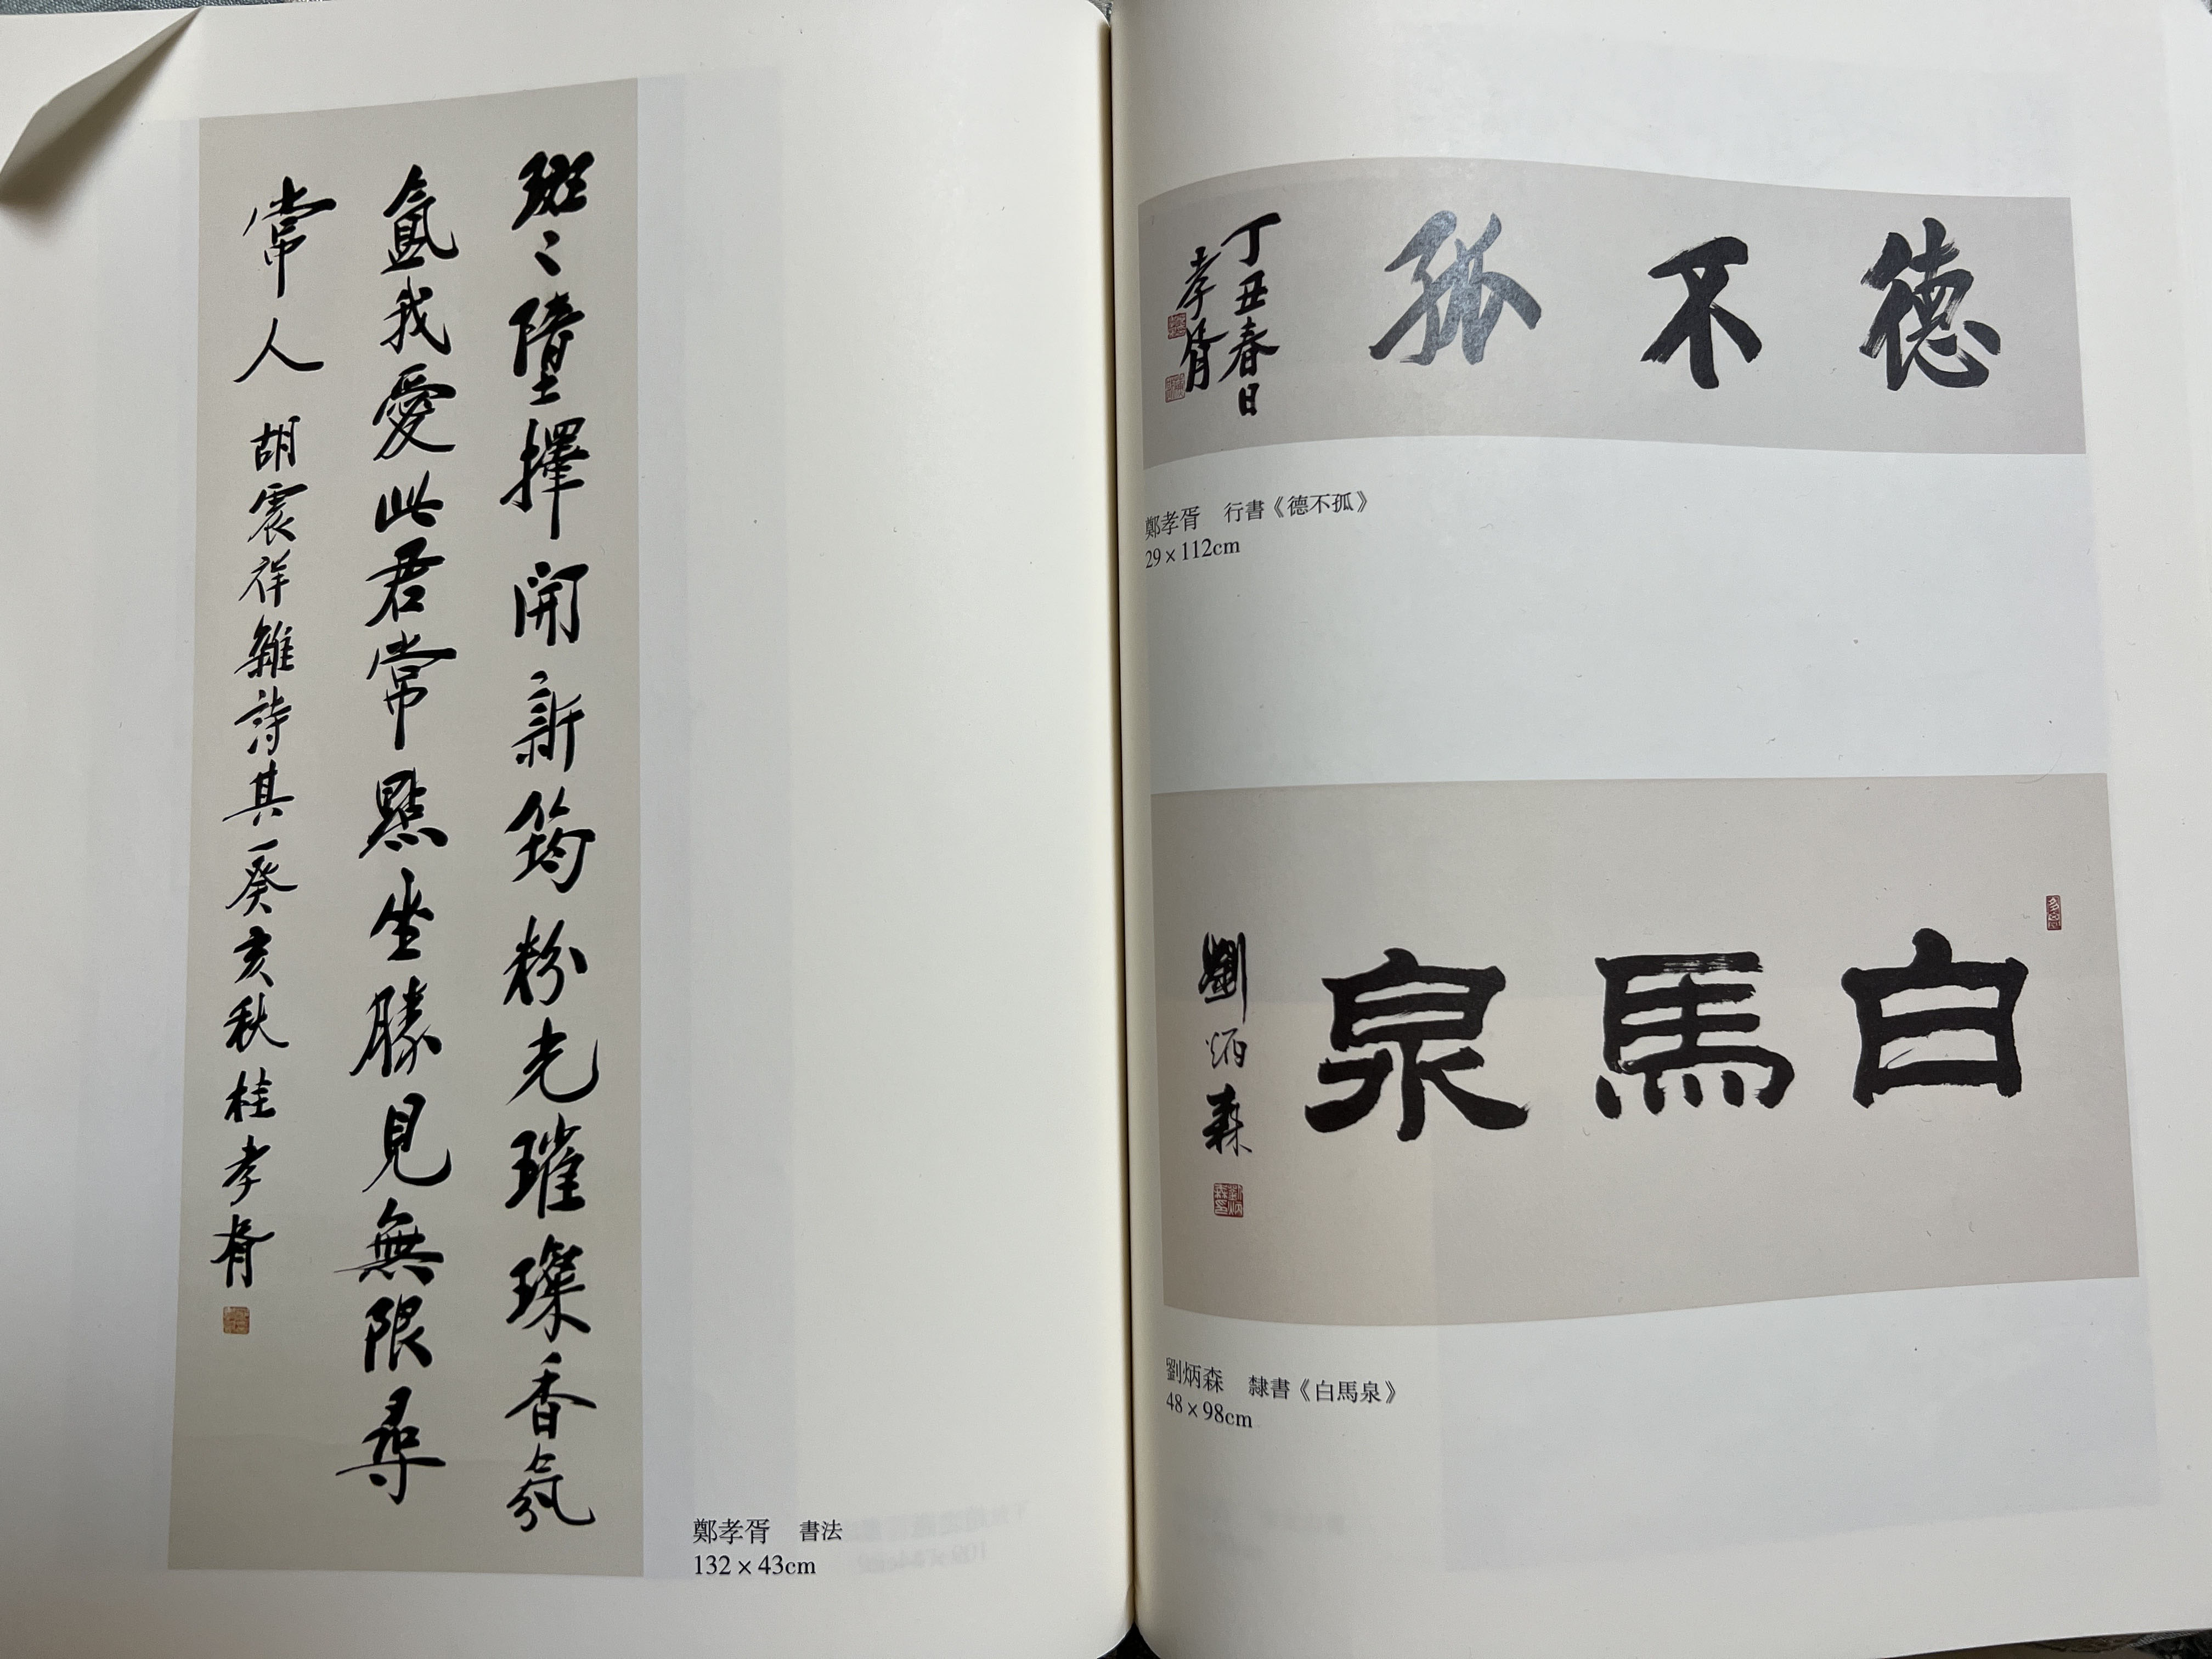 斑〻墮擇開新筠粉光璀璨香氛
氳我愛此君常點坐勝見無限尋
常人
胡震祥雜詩其一癸亥秋桂孝胥
鄭孝胥 書法
132×43cm
德不孤
丁丑春日
孝胥
鄭孝胥 行書《德不孤》
29×112cm
白馬泉
劉炳森
劉炳森 隸書《白馬泉》
48×98cm